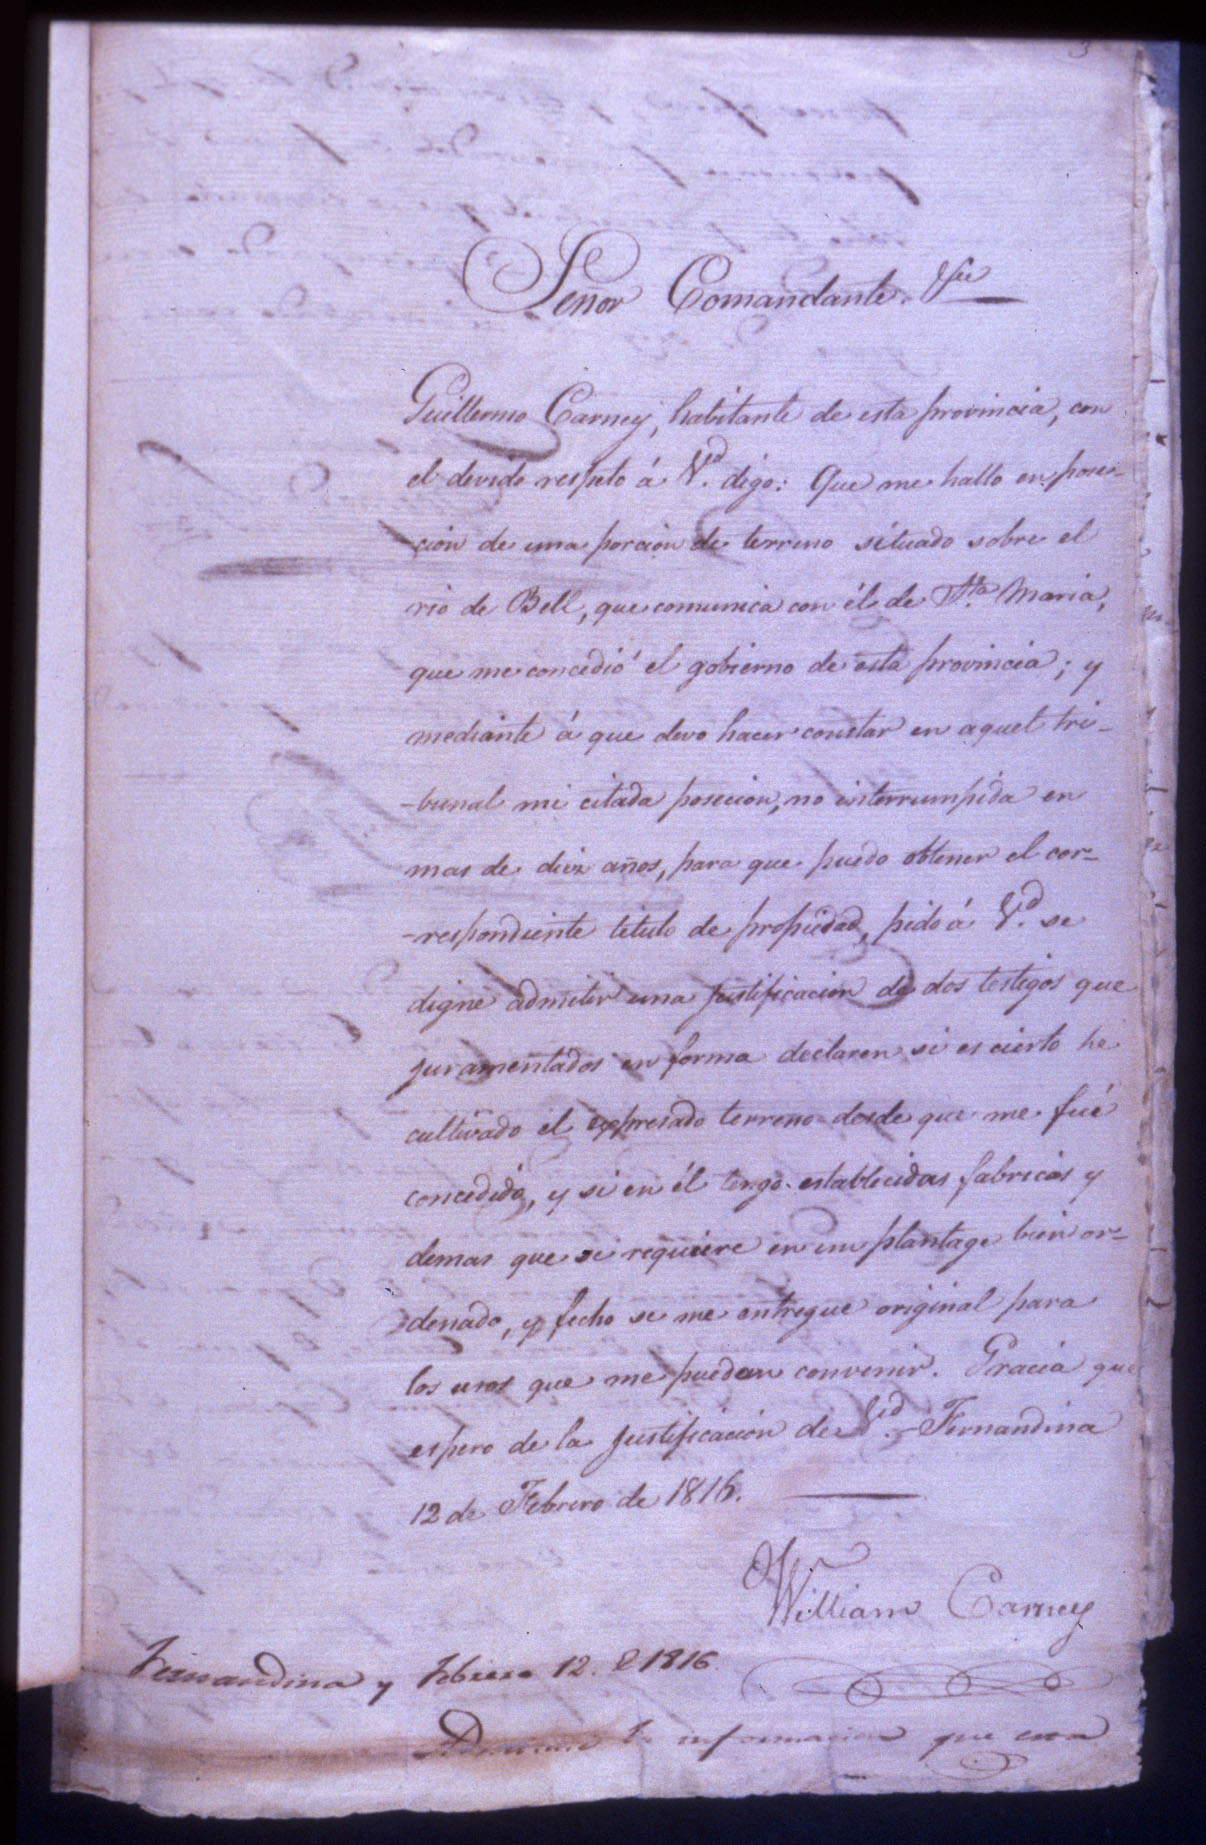 3
Señor Comandante.
Guillermo Carney, habitante de esta provincia, con
el devido respeto á V.d digo: Que me hallo en pose-
-cion de una porcion de terreno situado sobre el
rio de Bell, que comunica con él de S.ta Maria,
que me concedió el gobierno de esta provincia; y
mediante á que devo hacer constar en aquel tri-
-bunal mi citada posecion, no interrumpida en
mas de diez años, para que puedo obtener el cor-
-respondiente titulo de propiedad, pido á V.d se
digne admitir una justificacion de dos testigos que
juramentados en forma declaren si es cierto he
cultivado el expresado terreno desde que me fué
concedido, y si en él tengo establecidas fabricas y
demas que se requiere en un plantage bien or-
-denado, y fecho se me entregue original para
los usos que me puedan convenir. Gracia que
espero de la justificacion de V.d Fernandina
12 de Febrero de 1816.
William Carney
Fernandina y Febrero 12. de 1816.
la informacion que esta